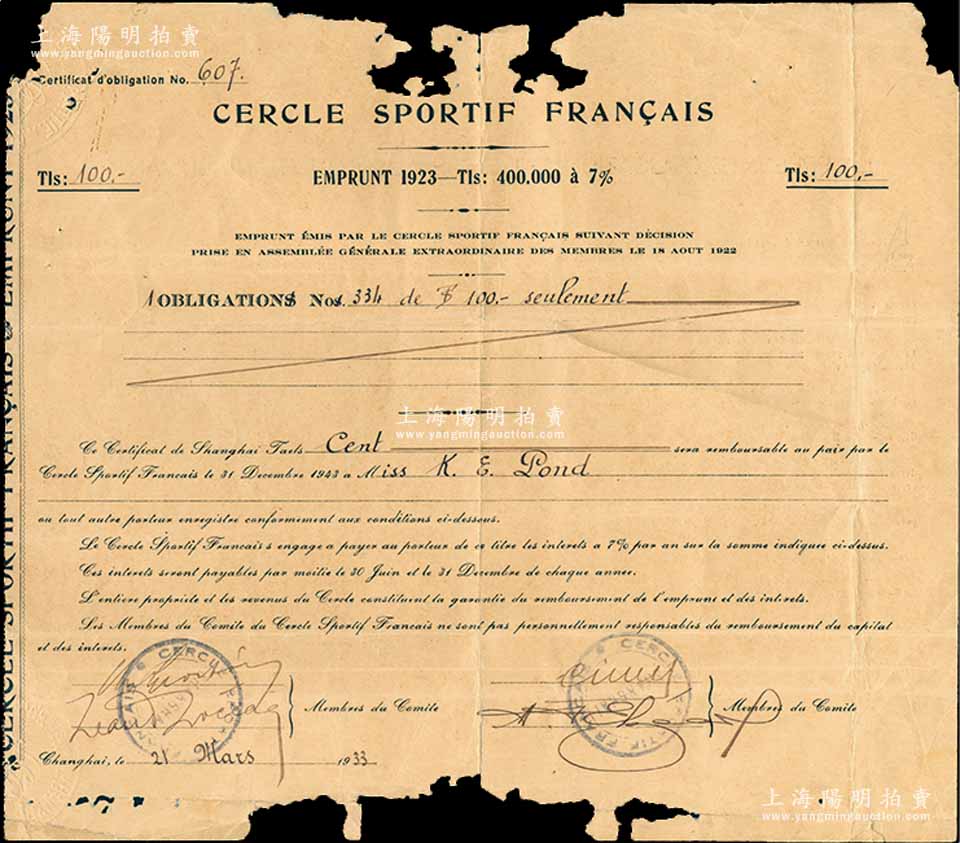 上海陽明拍賣
www.yangmingauction.com
Certificat d'obligation No. 607.
CERCLE SPORTIF FRANÇAIS
Tls: 100.-
EMPRUNT 1923—Tls: 400.000 à 7%
Tls: 100,-
EMPRUNT ÉMIS PAR LE CERCLE SPORTIF FRANÇAIS SUIVANT DÉCISION
PRISE EN ASSEMBLÉE GÉNÉRALE EXTRAORDINAIRE DES MEMBRES LE 18 AOUT 1922
1 OBLIGATIONS Nos. 334 de 100.- seulement
上海陽明拍賣
www.yangmingauction.com
Ce Certificat de Shanghai Taels Cent sera remboursable au pair par le
Cercle Sportif Francais le 31 Decembre 1943 a Miss K. E. Pond
ou tout autre porteur enregistre conformement aux conditions ci-dessous.
Le Cercle Sportif Francais s engage a payer au porteur de ce titre les interets a 7% par an sur la somme indiquee ci-dessus.
Ces interets seront payables par moitie le 30 Juin et le 31 Decembre de chaque annee.
L'entiere propriete et les revenus du Cercle constituent la garantie du remboursement de l'emprunt et des interets.
Les Membres du Comite du Cercle Sportif Francais ne sont pas personnellement responsables du remboursement du capital
et des interets.
Membres du Comite
Membres du Comite
Changhai, le 21 Mars 1933
CERCLE SPORTIF FRANÇAIS
EMPRUNT 1923
上海陽明拍賣
www.yangmingauction.com